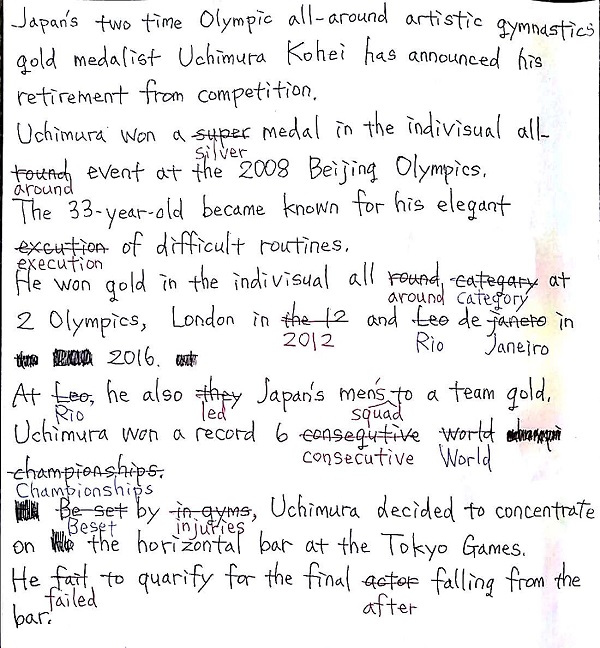 Japan's two time Olympic all-around artistic gymnastics
gold medalist Uchimura Kohei has announced his
retirement from competition.
Uchimura won a super medal in the indivisual all-
silver
round event at the 2008 Beijing Olympics.
around
The 33-year-old became known for his elegant
excution of difficult routines.
execution
He won gold in the indivisual all round, categary at
around category
2 Olympics, London in the 12 and Leo de janero in
2012 Rio Janeiro
2016.
At Leo, he also they Japan's men's to a team gold.
Rio led squad
Uchimura won a record 6 consegutive world
consecutive World
championships.
Championships
Be set by in gyms, Uchimura decided to concentrate
Beset injuries
on the horizontal bar at the Tokyo Games.
He fait to quarify for the final actor falling from the
failed after
bar.